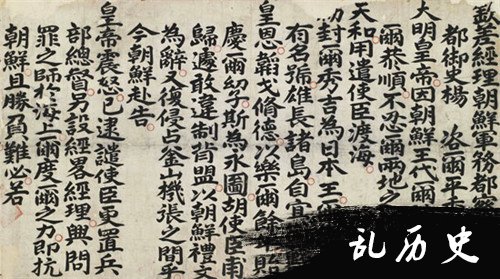 欽差經理朝鮮軍務都察
都御史楊 洛爾平秀
大明皇帝因朝鮮王代爾
爾恭順不忍爾兩地之
天和用遣使臣渡海
勑封爾秀吉為日本王
有名號雄長諸島自宜
皇恩韜戈脩德以樂爾餘年貽
慶爾幼子斯為永圖胡使臣甫
歸遽敢違制背盟以朝鮮禮文
為辭又復侵占釜山機張之間乎
今朝鮮赴告
皇帝震怒已逮譴使臣更置兵
部總督另設經畧經理興問
罪之師於海上爾度一爾之力即抗
朝鮮且勝負難必若
乱历史